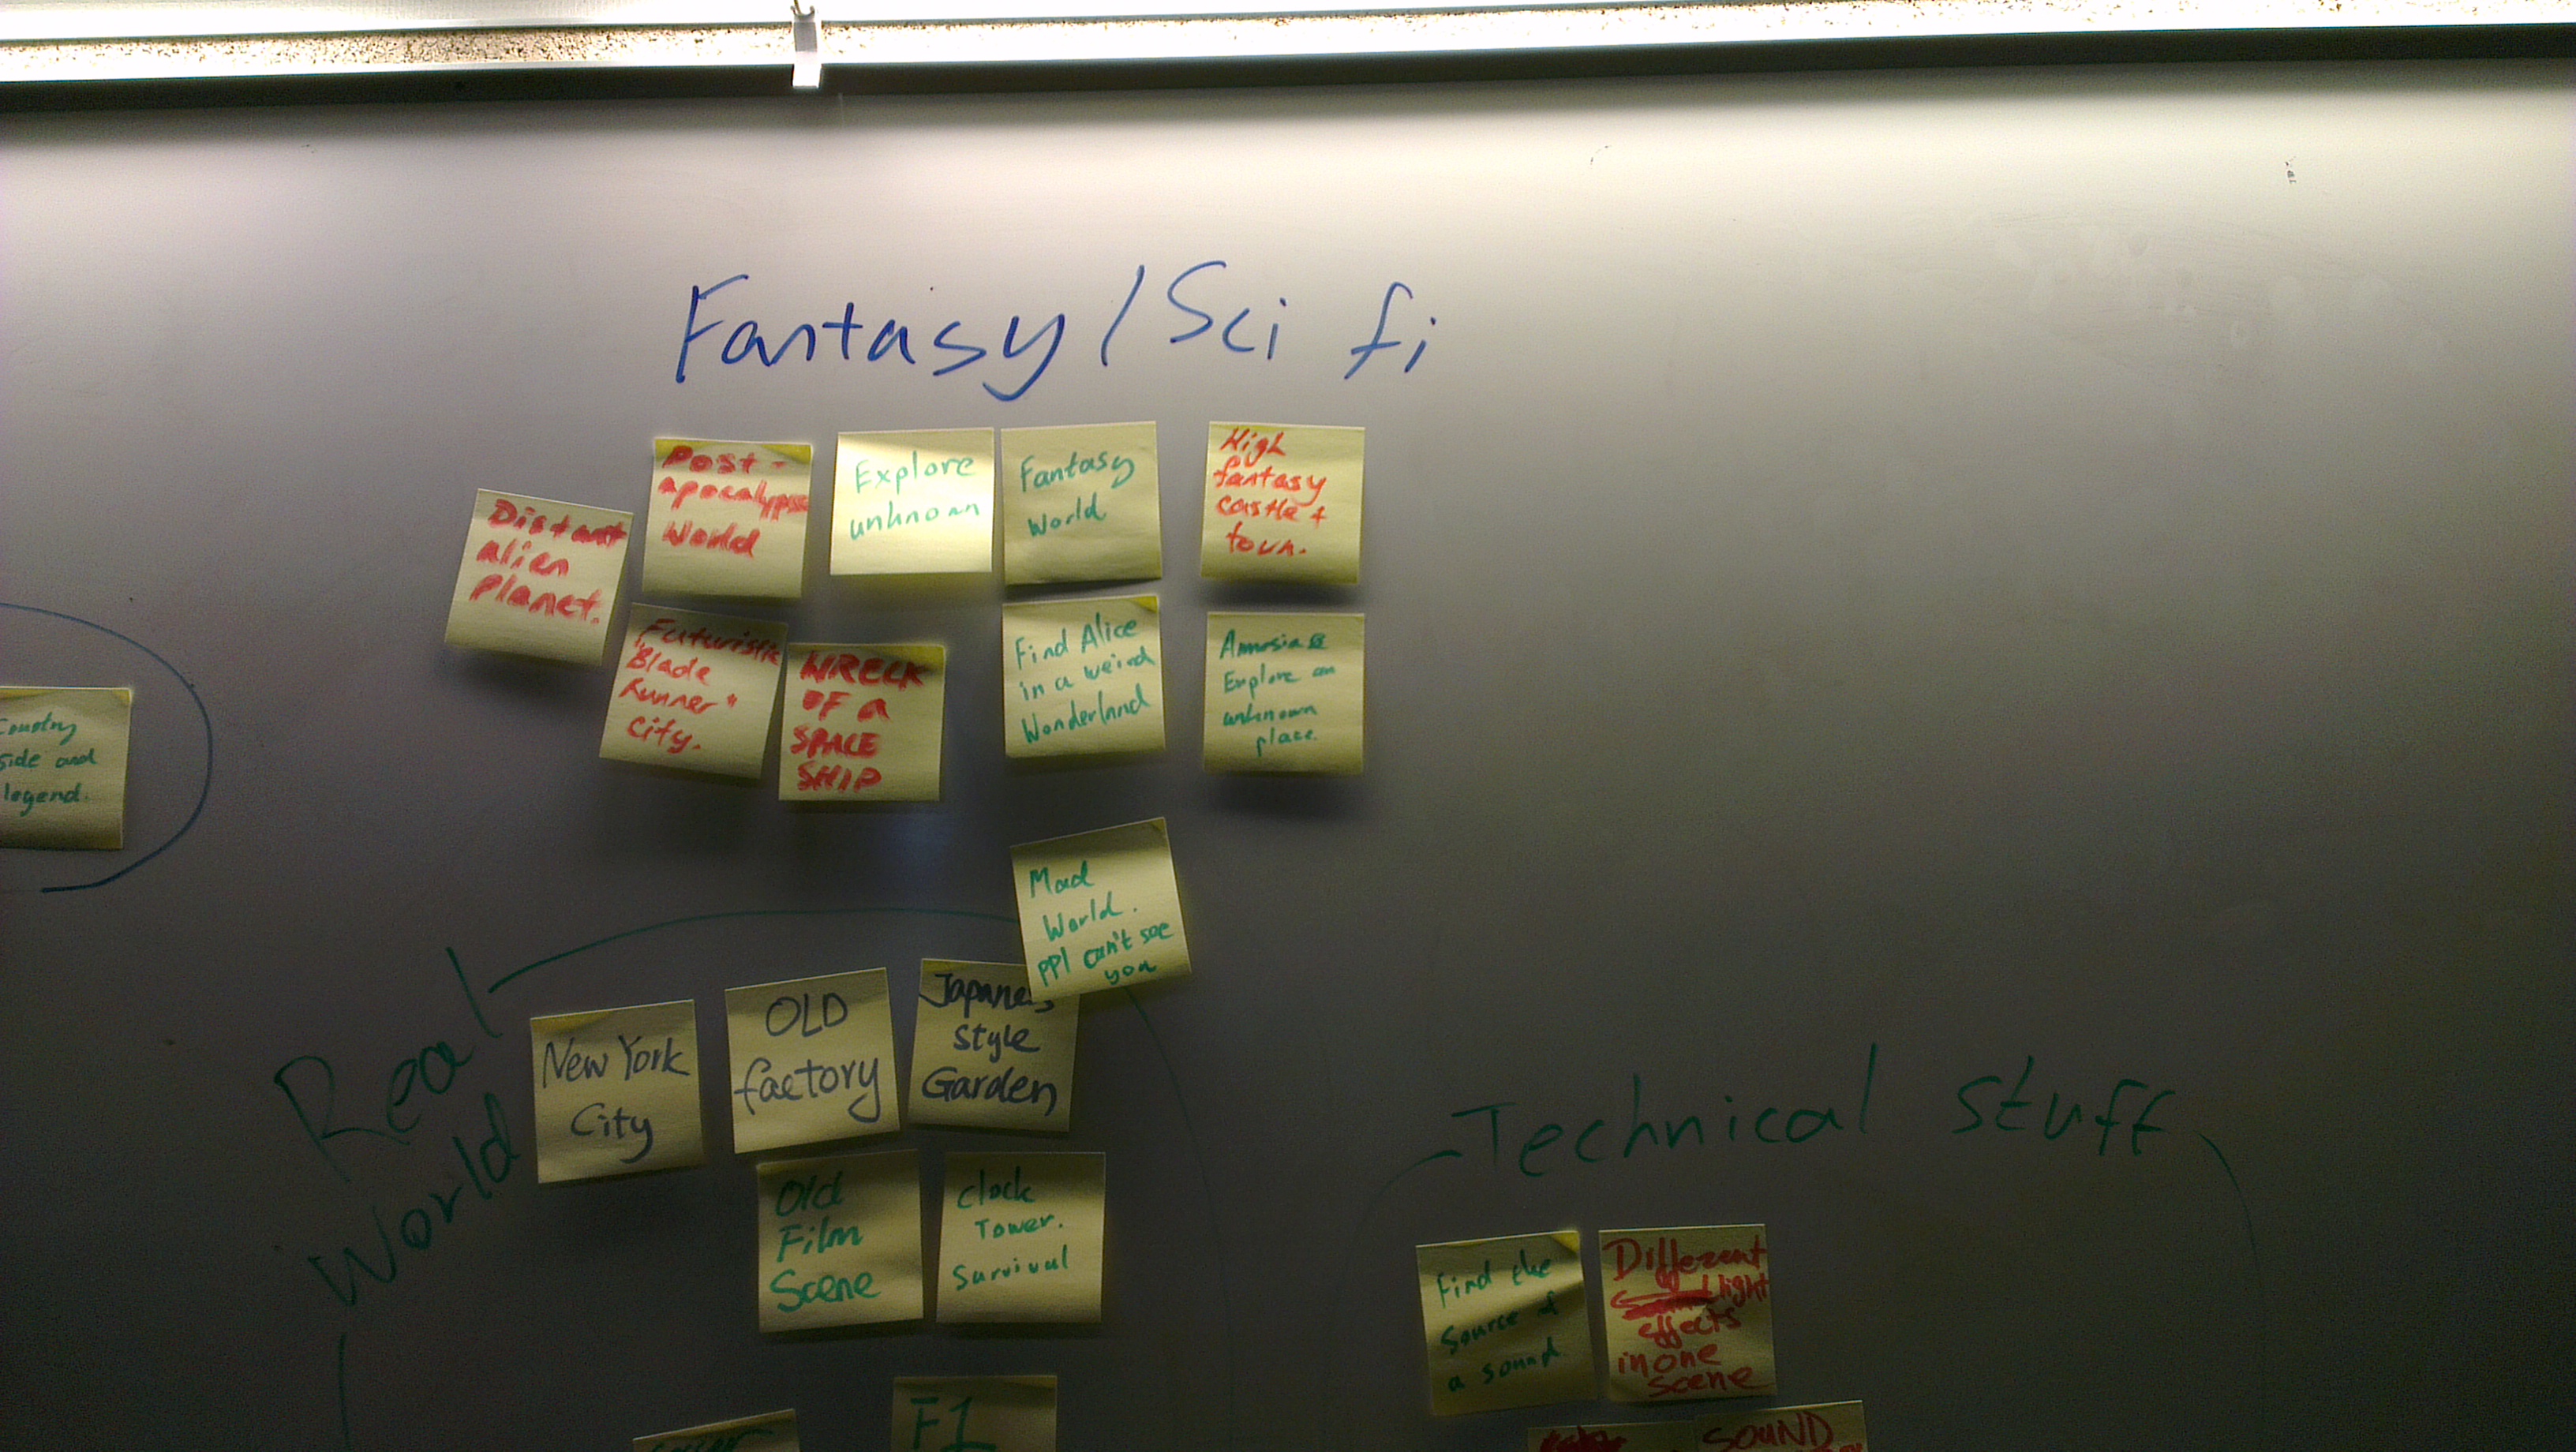 Fantasy / Sci fi
Distant
alien
planet.
Post-
apocalypse
World
Explore
unknown
Fantasy
World
High
fantasy
castle +
town.
Futuristic
"Blade
runner"
City.
WRECK
OF A
SPACE
SHIP
Find Alice
in a weird
Wonderland
Amnesia
Explore an
unknown
place.
Country
side and
legend.
Mad
World.
ppl can't see
you
Real
World
New York
City
OLD
factory
Japanes
Style
Garden
Old
Film
Scene
Clock
Tower.
Survival
F1
Technical stuff
Find the
source of
a sound
Different
light
effects
in one
scene
SOUND